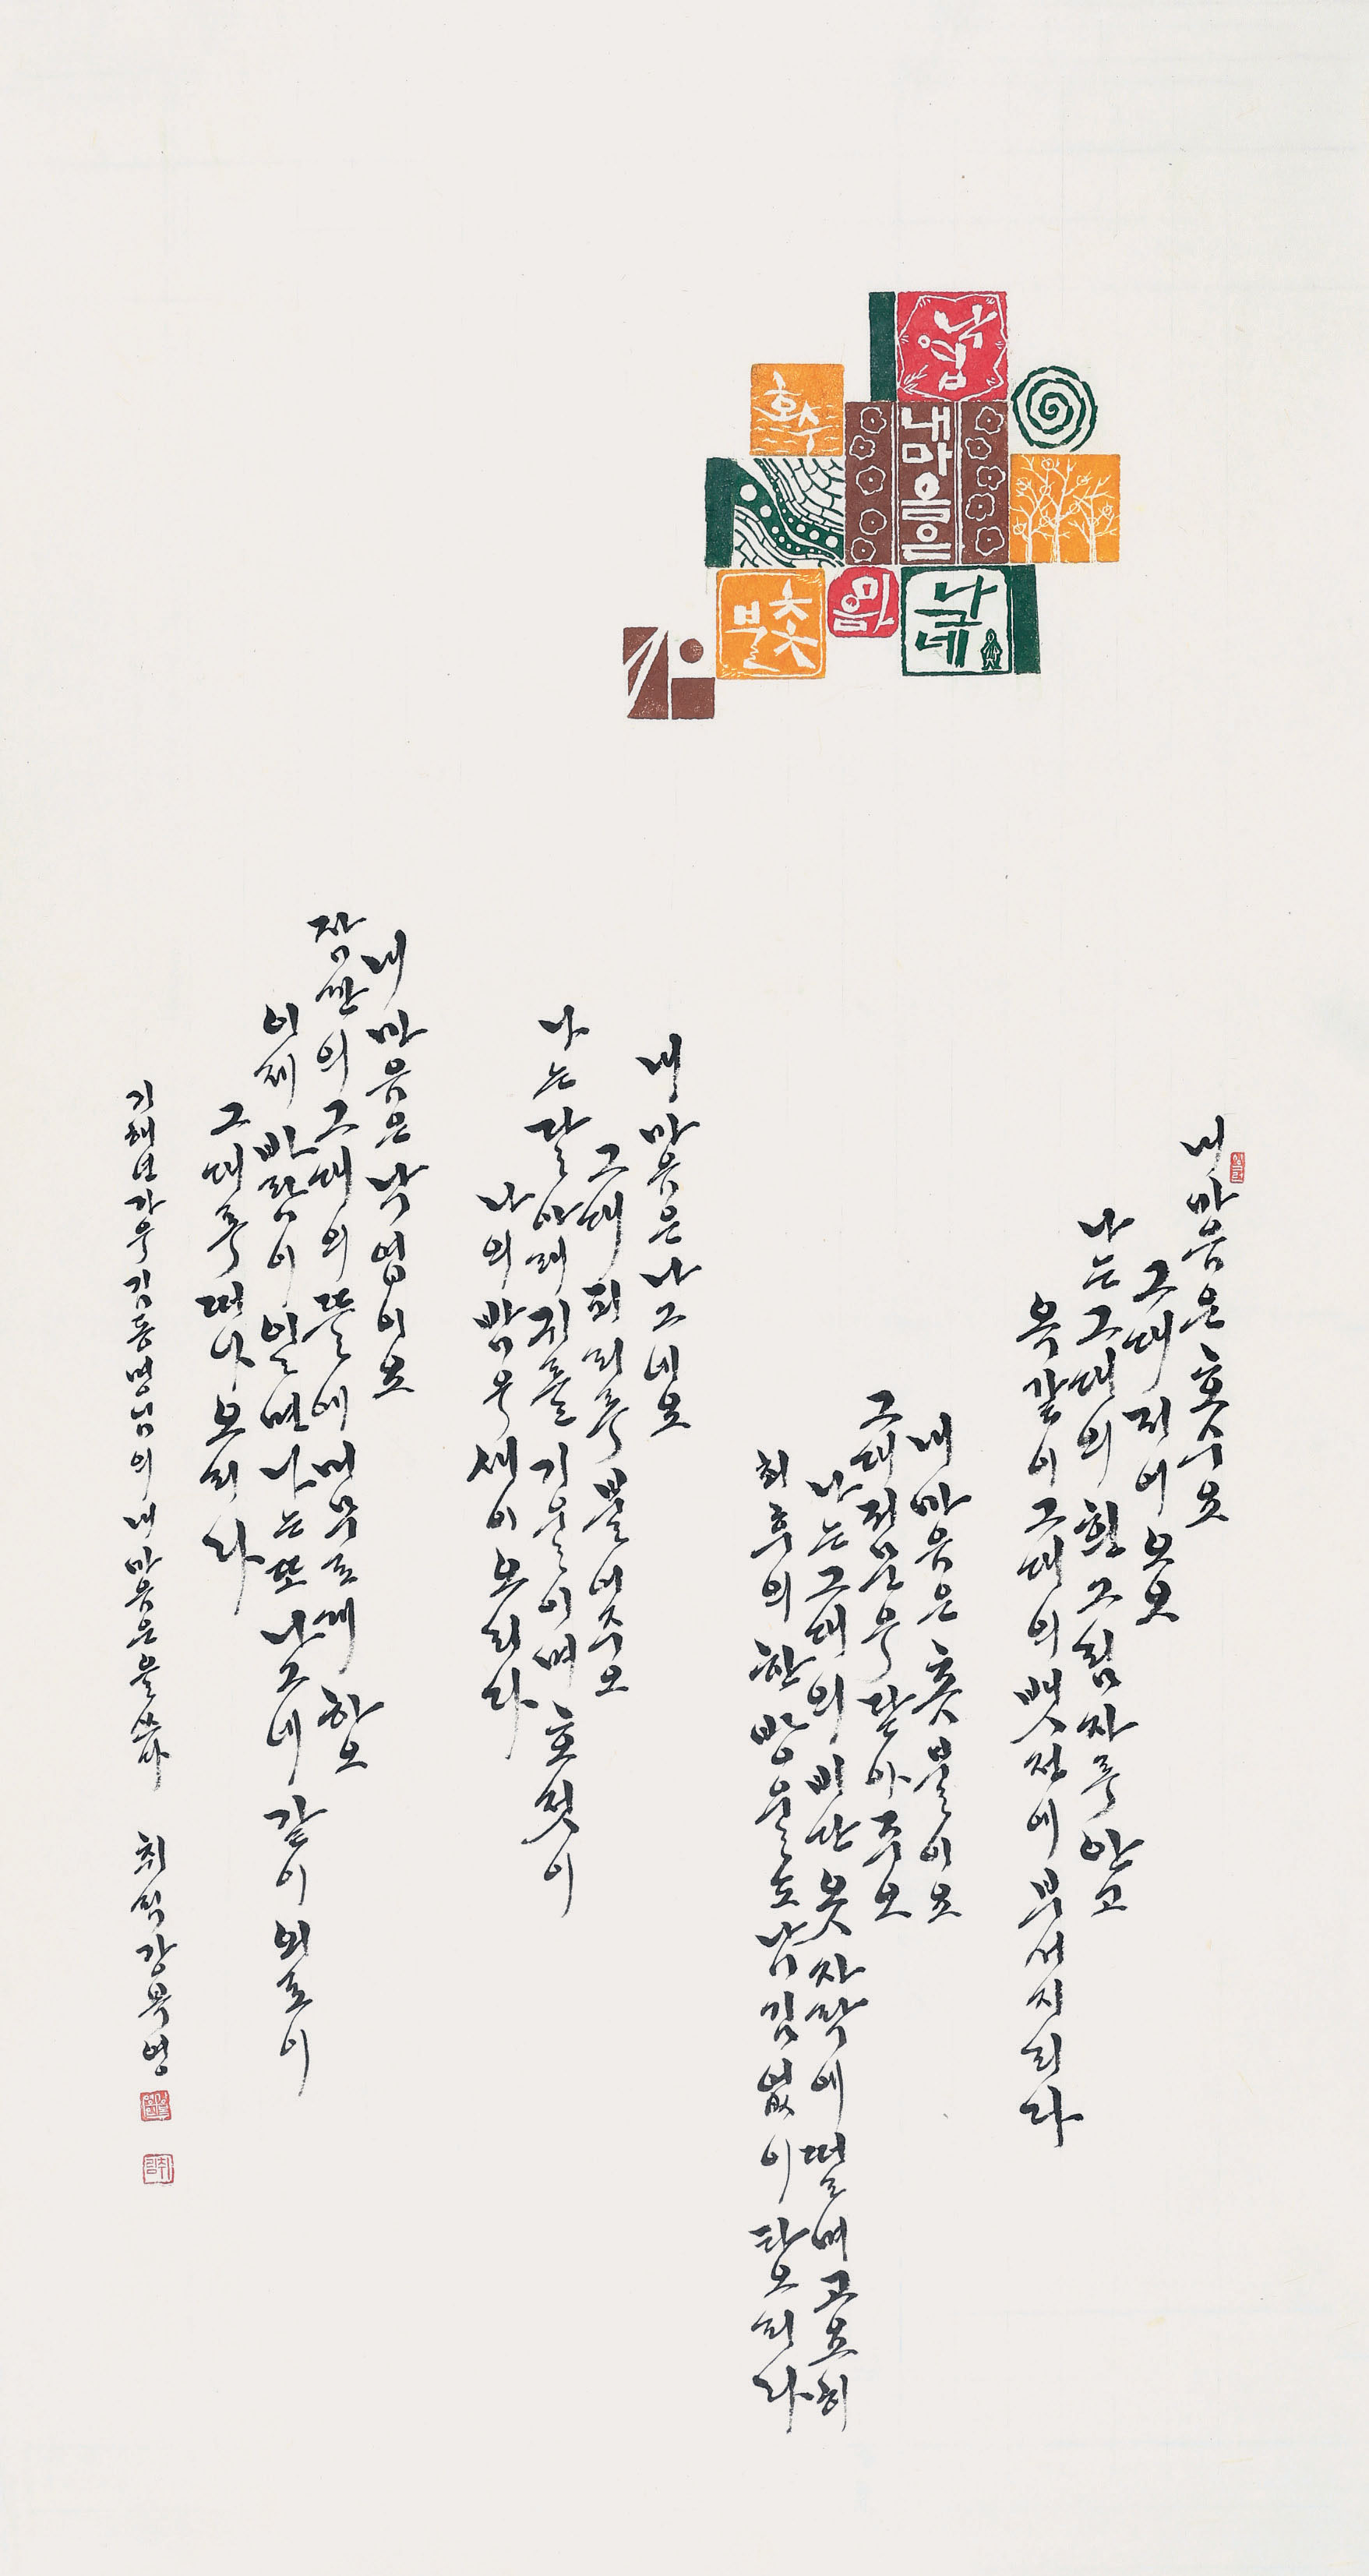 낙엽
호수
내마음은
촛불
마음
나그네
내 마음은 호수요
그대 저어 오오
나는 그대의 흰 그림자를 안고
옥같이 그대의 뱃전에 부서지리라
내 마음은 촛불이요
그대 저 문을 닫아 주오
나는 그대의 비단 옷자락에 떨며 고요히
최후의 한 방울도 남김없이 타오리라
내 마음은 나그네요
그대 피리를 불어주오
나는 달 아래 귀를 기울이며 호젓이
나의 밤을 새이오리라
내 마음은 낙엽이요
잠깐의 그대의 뜰에 머무르게 하오
이제 바람이 일면 나는 또 나그네 같이 외로이
그대를 떠나오리라
기해년 가을 김동명님의 내 마음은을 쓰다 취림 강옥영